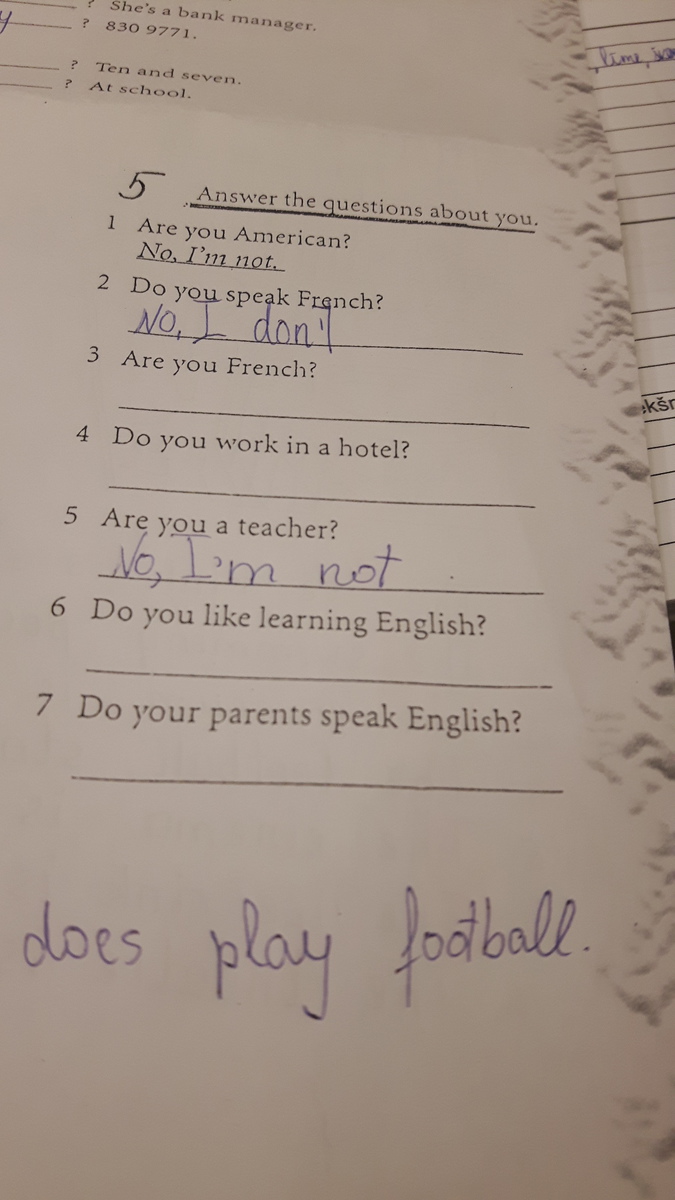 ? She's a bank manager.
y ? 830 9771.
? Ten and seven.
? At school.
, time,
5 Answer the questions about you.
1 Are you American?
No, I'm not.
2 Do you speak French?
No, I don't
3 Are you French?
4 Do you work in a hotel?
5 Are you a teacher?
No, I'm not
6 Do you like learning English?
7 Do your parents speak English?
does play football.